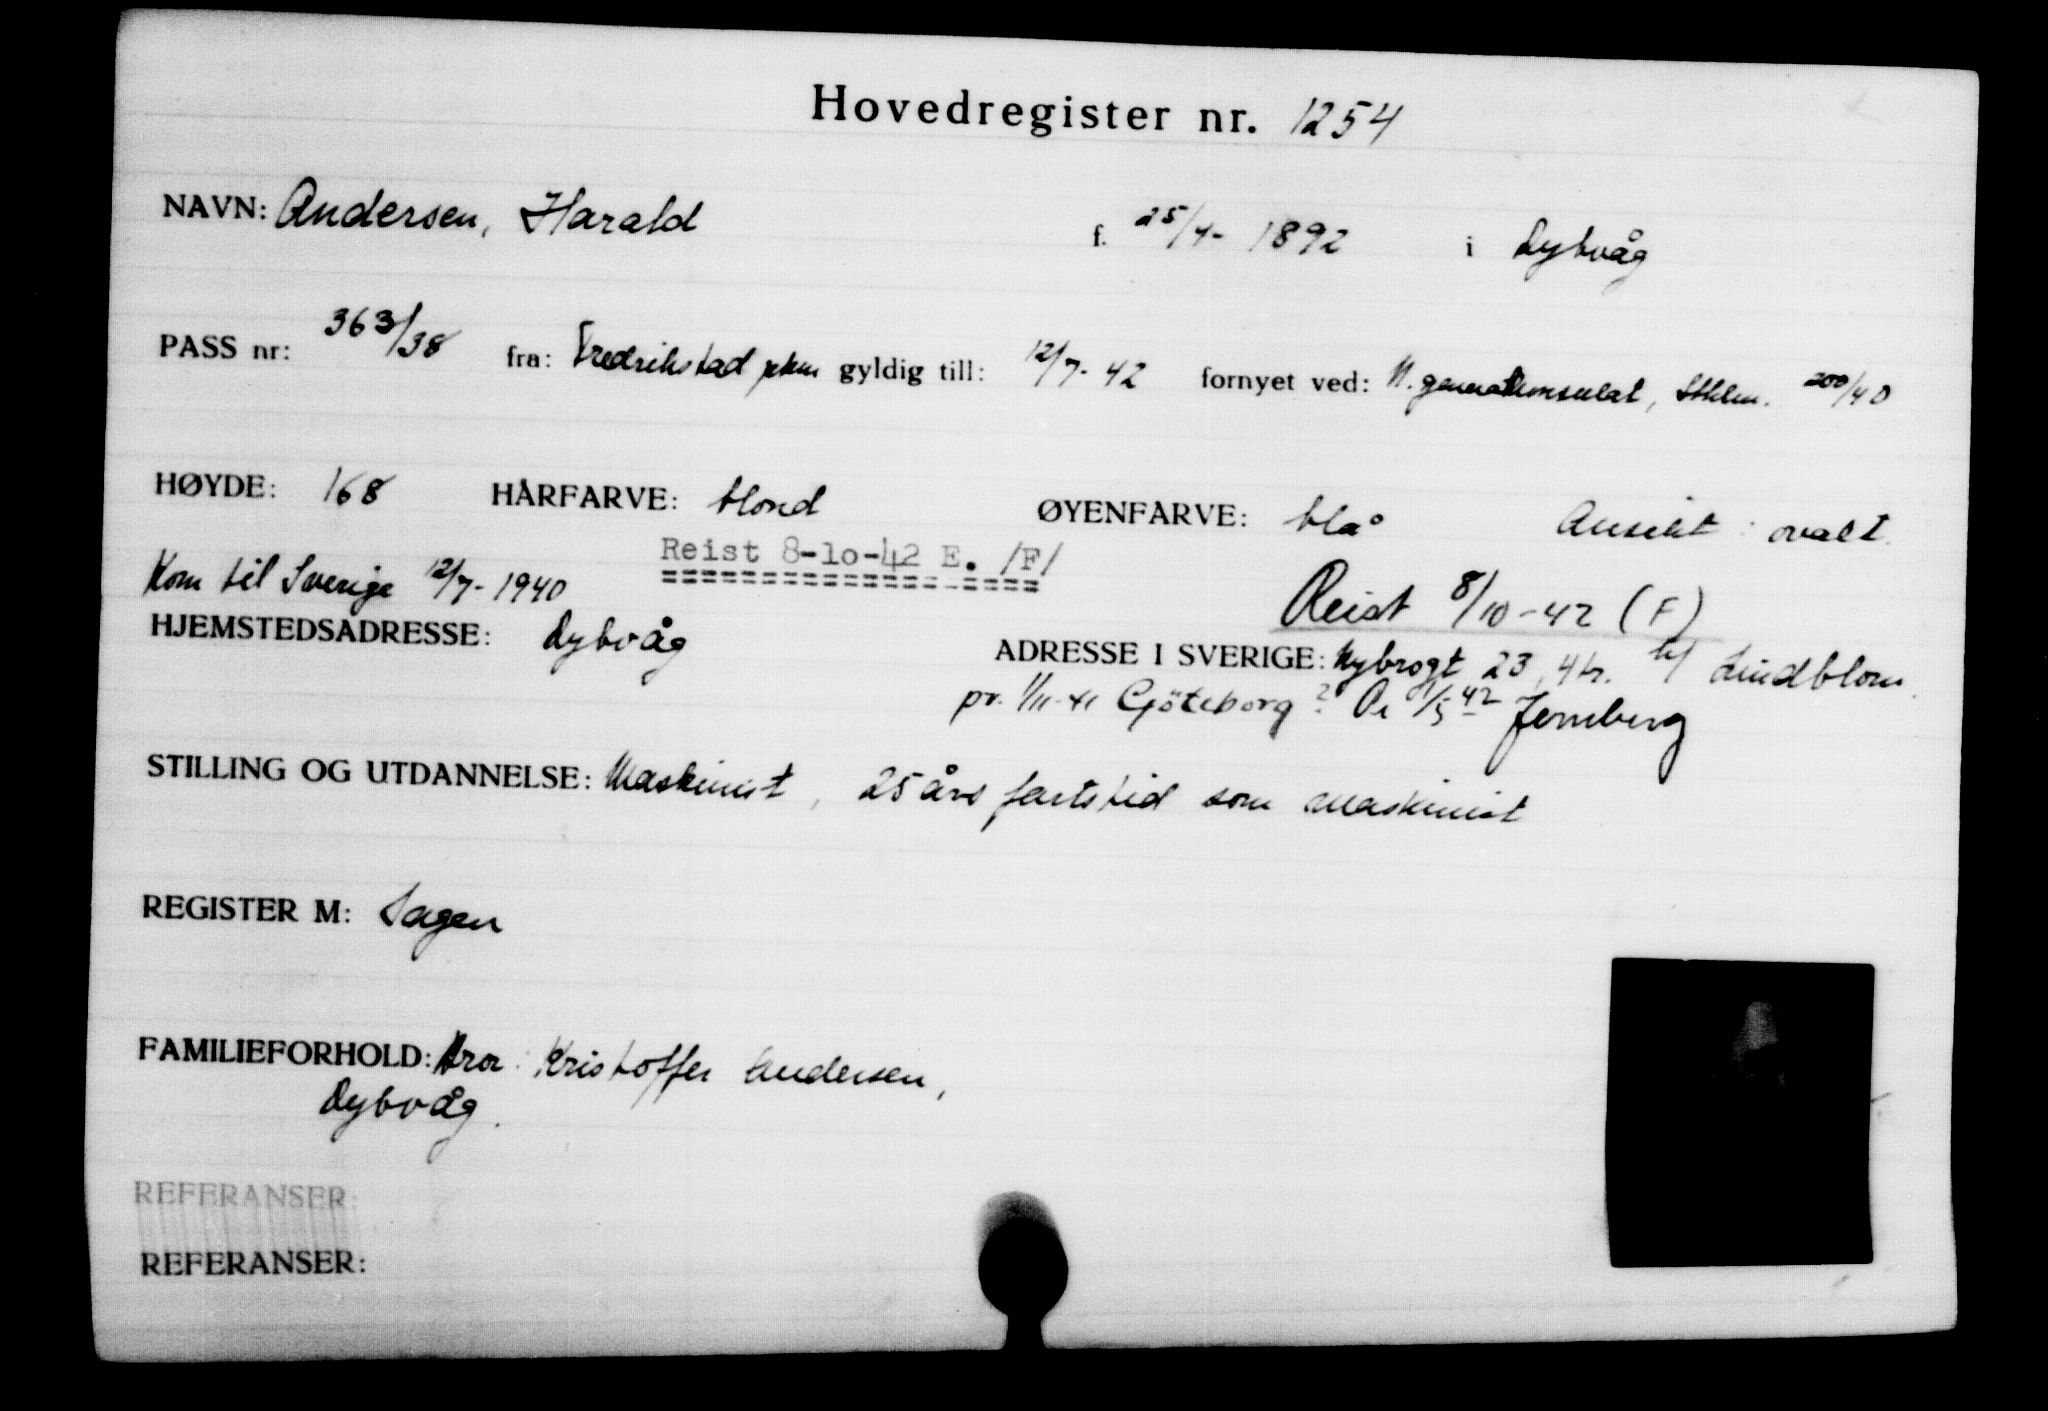 Hovedregister nr. 1254
NAVN: Andersen, Harald f. 25/4- 1892 i Dybvåg
PASS nr: 363/38 fra: Fredrikstad pkm gyldig till: 12/7- 42 fornyet ved: N. generalkonsulat, Sthlm. 200/40
HØYDE: 168 HÅRFARVE: blond ØYENFARVE: blå Ansikt: ovalt.
Reist 8-10-42 E. /F/
Kom til Sverige 12/7- 1940 Reist 8/10-42 (F)
HJEMSTEDSADRESSE: Dybvåg ADRESSE I SVERIGE: Nybrogt 23, 4 tr. b/ Lindblom.
pr. 1/11-41 Göteborg? Pr 1/5 42 Jernberg
STILLING OG UTDANNELSE: Maskinist, 25 års fartstid som maskinist
REGISTER M: Sagen
FAMILIEFORHOLD: Bror: Kristoffer Andersen,
Dybvåg.
REFERANSER:
REFERANSER: